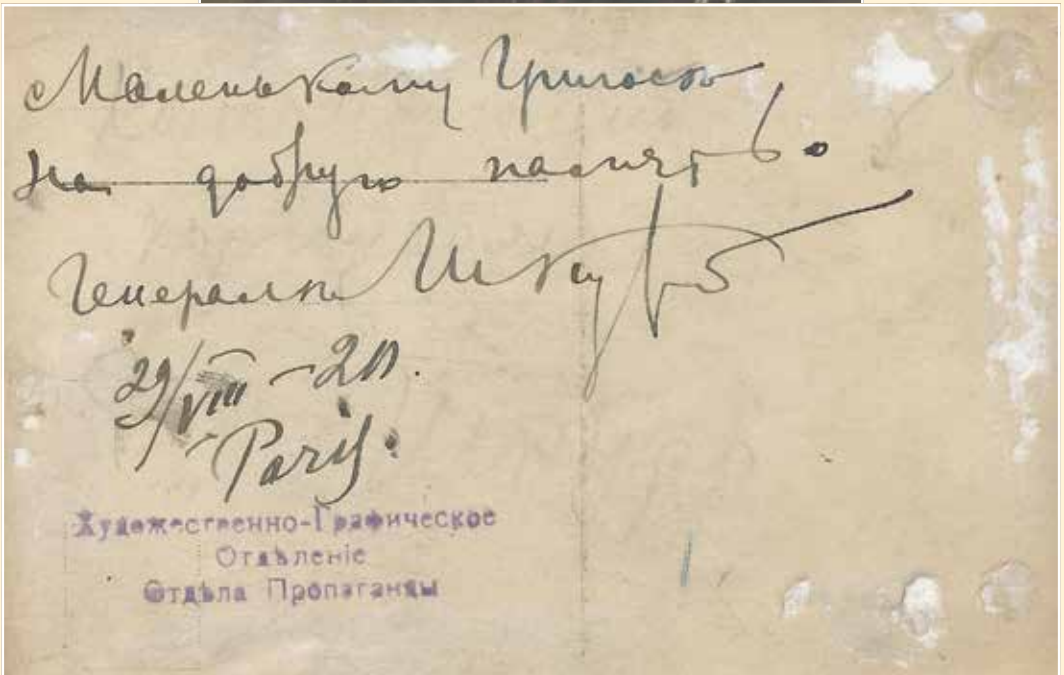 Маленькому
на добрую память
Генералъ Шкуро
29/VIII – 20.
Paris.
Художественно-Графическое
Отдѣленіе
Отдѣла Пропаганды